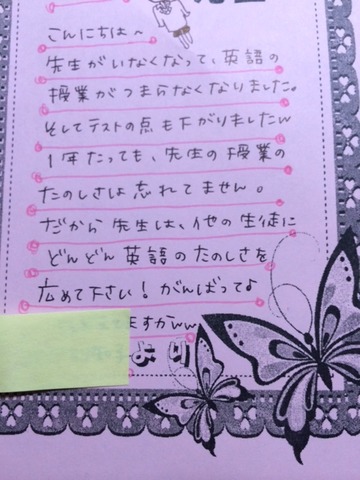 こんにちは〜
先生がいなくなって、英語の
授業がつまらなくなりました。
そしてテストの点も下がりましたw
1年たっても、先生の授業の
たのしさは忘れてません。
だから先生は、他の生徒に
どんどん英語のたのしさを
広めて下さい！がんばってよ
ますかww
より